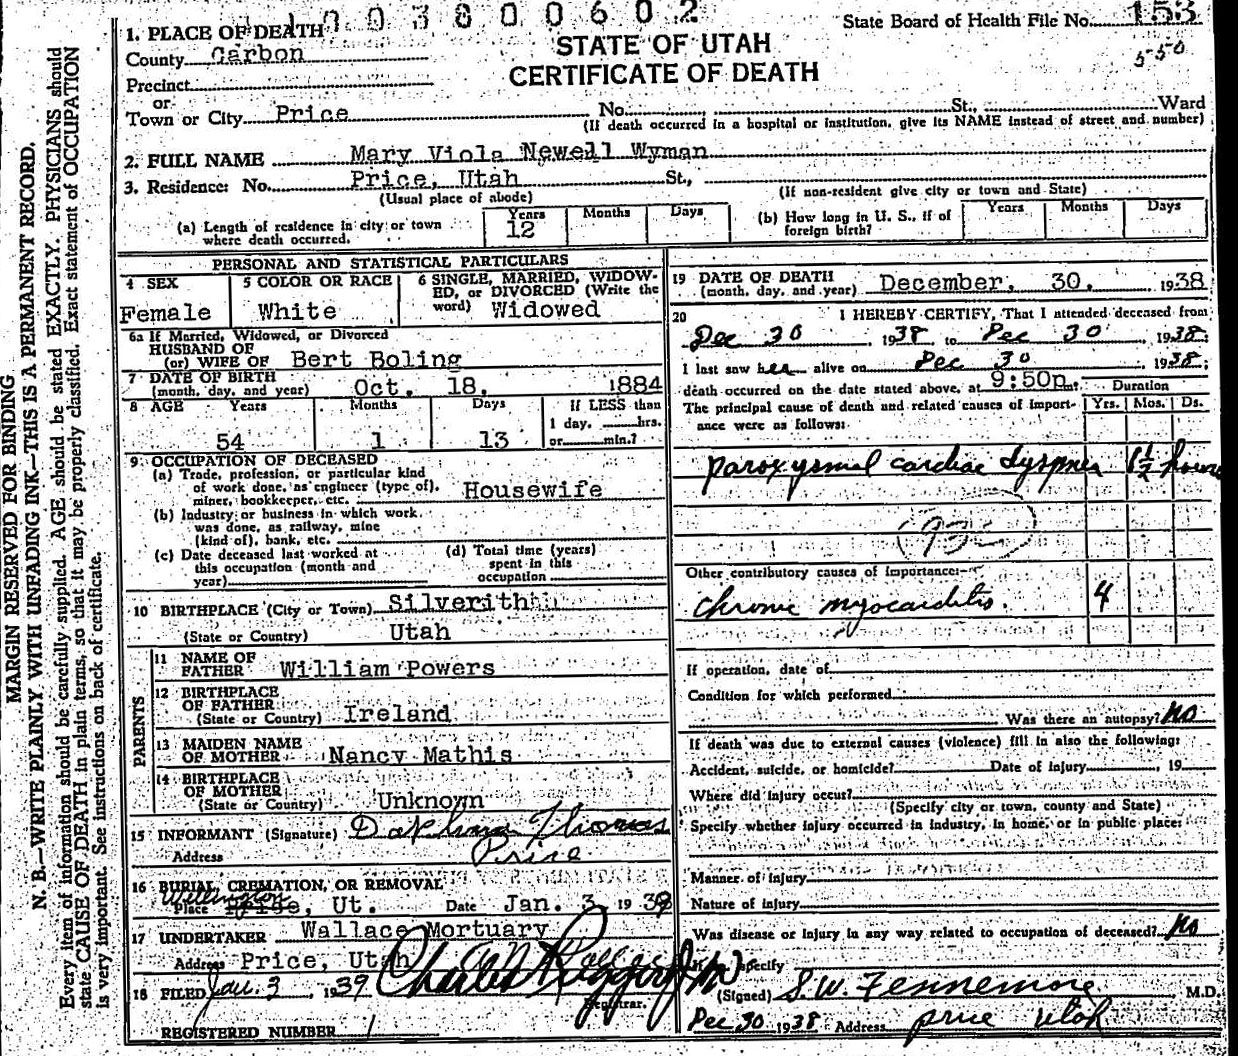 003800602
State Board of Health File No. 153
550
1. PLACE OF DEATH
County Carbon
STATE OF UTAH
CERTIFICATE OF DEATH
Precinct
or
Town or City Price No. St., Ward
(If death occurred in a hospital or institution, give its NAME instead of street and number)
2. FULL NAME Mary Viola Newell Wyman
3. Residence: No. Price, Utah St.,
(Usual place of abode)
(If non-resident give city or town and State)
(a) Length of residence in city or town where death occurred. Years 12 Months Days
(b) How long in U. S., if of foreign birth? Years Months Days
PERSONAL AND STATISTICAL PARTICULARS
4 SEX
Female
5 COLOR OR RACE
White
6 SINGLE, MARRIED, WIDOW-
ED, or DIVORCED (Write the
word) Widowed
6a If Married, Widowed, or Divorced
HUSBAND OF
(or) WIFE OF Bert Boling
7 DATE OF BIRTH
(month, day, and year) Oct. 18, 1884
8 AGE Years Months Days If LESS than
1 day, hrs.
54 1 13 or min.?
9 OCCUPATION OF DECEASED
(a) Trade, profession, or particular kind
of work done, as engineer (type of),
miner, bookkeeper, etc. Housewife
(b) Industry or business in which work
was done, as railway, mine
(kind of), bank, etc.
(c) Date deceased last worked at
this occupation (month and
year)
(d) Total time (years)
spent in this
occupation
10 BIRTHPLACE (City or Town) Silverith
(State or Country) Utah
PARENTS
11 NAME OF
FATHER William Powers
12 BIRTHPLACE
OF FATHER
(State or Country) Ireland
13 MAIDEN NAME
OF MOTHER Nancy Mathis
14 BIRTHPLACE
OF MOTHER
(State or Country) Unknown
15 INFORMANT (Signature) Daphna Thomas
Address Price
16 BURIAL, CREMATION, OR REMOVAL
Wellington
Place Price, Ut. Date Jan. 3, 1939
17 UNDERTAKER Wallace Mortuary
Address Price, Utah
18 FILED Jan. 3, 1939
Registrar.
REGISTERED NUMBER 1
19 DATE OF DEATH
(month, day, and year) December, 30, 1938
20 I HEREBY CERTIFY, That I attended deceased from
Dec 30, 1938, to Dec 30 1938;
I last saw her alive on Dec 30 1938;
death occurred on the date stated above, at 9:50p.
Duration
The principal cause of death and related causes of import-
ance were as follows:
Yrs. Mos. Ds.
paroxysmal cardiac dyspnea 1 1/2 hours
Other contributory causes of importance:
chronic myocarditis. 4
If operation, date of
Condition for which performed
Was there an autopsy? No
If death was due to external causes (violence) fill in also the following:
Accident, suicide, or homicide? Date of injury , 19
Where did injury occur?
(Specify city or town, county and State)
Specify whether injury occurred in industry, in home, or in public place:
Manner of injury
Nature of injury
Was disease or injury in any way related to occupation of deceased? No
specify
(Signed) S.W. Fennemore M.D.
Dec 30 1938 Address price utah
MARGIN RESERVED FOR BINDING
N. B.—WRITE PLAINLY WITH UNFADING INK—THIS IS A PERMANENT RECORD.
Every item of information should be carefully supplied. AGE should be stated EXACTLY. PHYSICIANS should
state CAUSE OF DEATH in plain terms, so that it may be properly classified. Exact statement of OCCUPATION
is very important. See instructions on back of certificate.